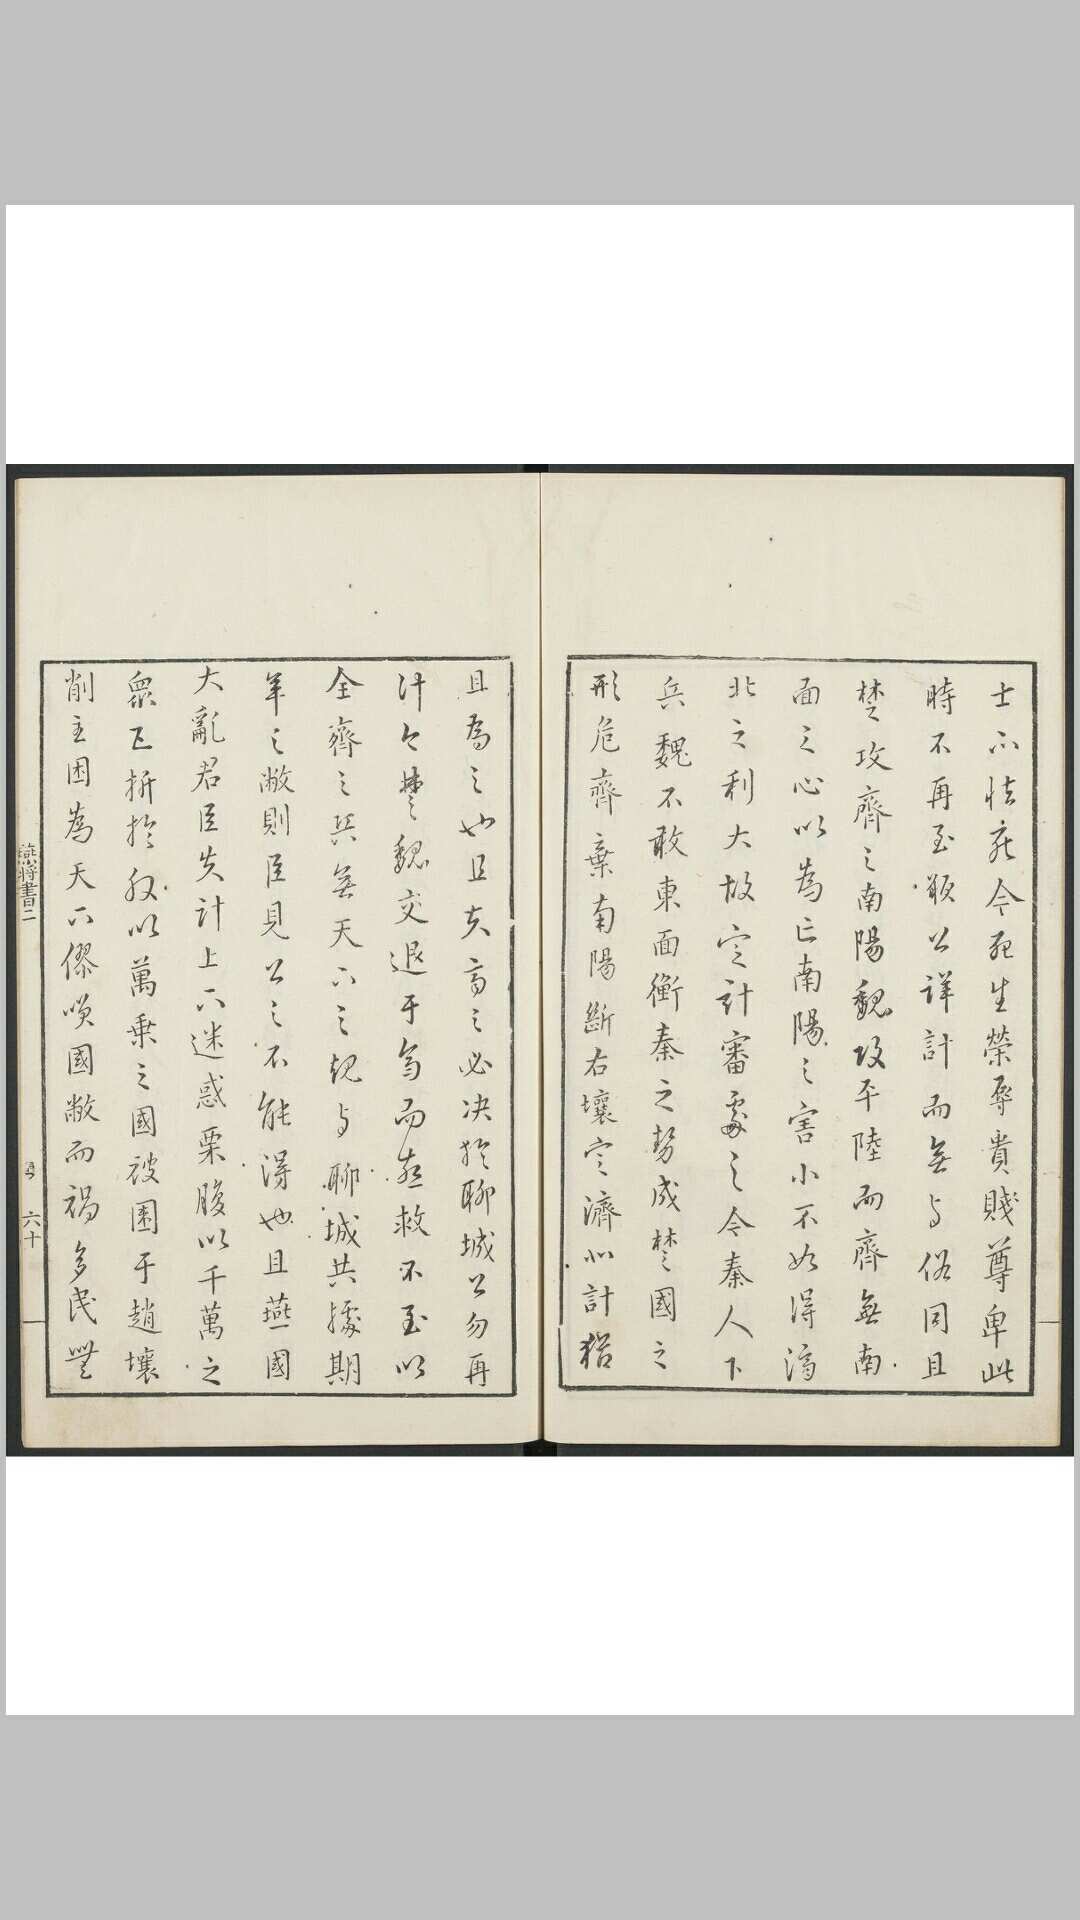 士不怯死今死生榮辱貴賤尊卑此
時不再至願公詳計而無与俗同且
楚攻齊之南陽魏攻平陸而齊無南
面之心以為亡南陽之害小不如得濟
北之利大故定計審處之今秦人下
兵魏不敢東面衡秦之勢成楚國之
形危齊棄南陽斷右壤定濟北計猶
且為之也且夫齊之必决於聊城公勿再
計今楚魏交退于齊而燕救不至以
全齊之兵無天下之規与聊城共據期
年之敝則臣見公之不能得也且燕國
大亂君臣失計上下迷惑栗腹以千萬之
眾五折於外以萬乗之國被圍于趙壤
削主困為天下僇笑國敝而禍多民無
燕將書二
六十